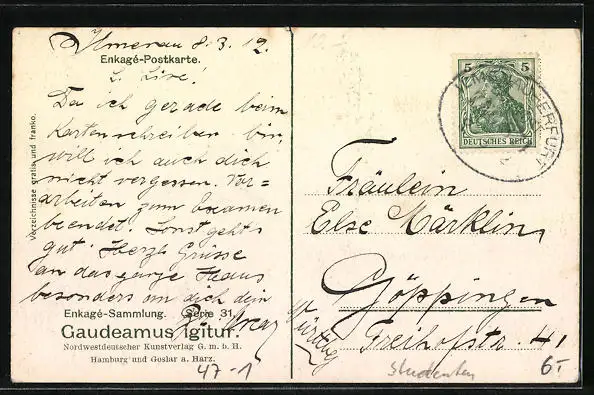 Ilmenau 8.3.12.
Enkagé-Postkarte.
L. Lise!
Da ich gerade beim
Kartenschreiben bin,
will ich auch dich
nicht vergessen. Vor=
arbeiten zum Examen
beendet. Sonst geht's
gut. Herzl. Grüsse
an das ganze Haus
besonders an dich dein
Enkagé-Sammlung. Serie 31.
Gaudeamus igitur.
Nordwestdeutscher Kunstverlag G. m. b. H.
Hamburg und Goslar a. Harz.
47-1
Verzeichnisse gratis und franko.
5 5
DEUTSCHES REICH
ERFURT
Fräulein
Else Märklin,
Göppingen
Freihofstr. 41
Studenten
6.-